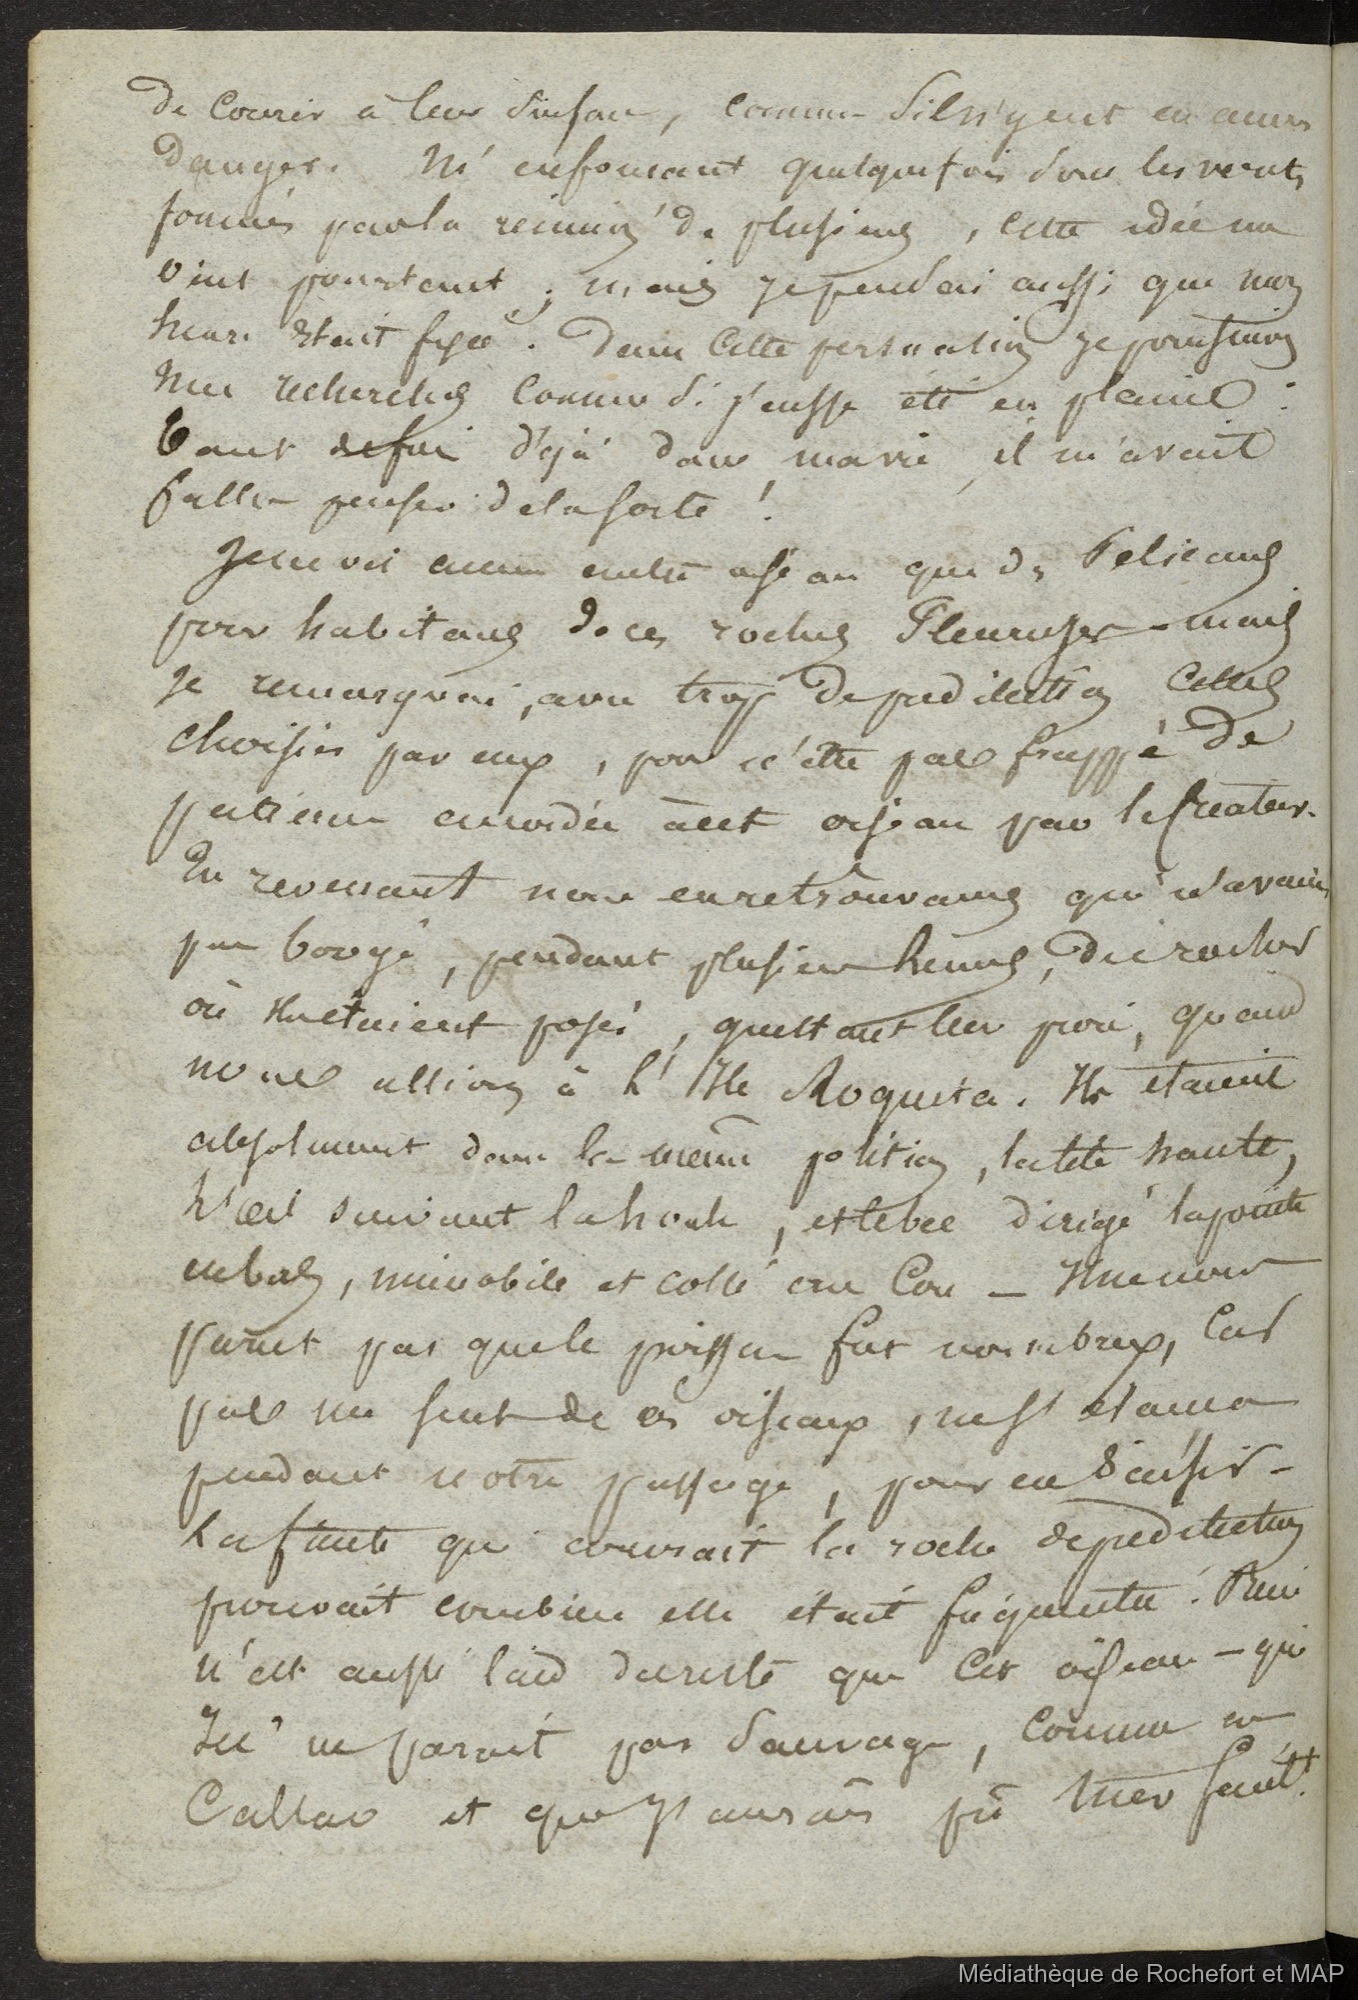 de courir à leur surface, comme s'il n'y eut eu aucun
danger. M'enfonçant quelquefois dans les vents
formés par la réunion de plusieurs, cette idée me
vint pourtant ; mais je pensai aussi que mon
heure était fixée. Dans cette persuasion je poursuivis
mes recherches comme si j'eusse été en plaine :
tant de fois déjà dans ma vie il m'avait
fallu penser de la sorte !
Je ne vis aucun autre oiseau que des Pelicans
pour habitans de ces roches mais
je remarquai, avec trop de predilection celles
choisies par eux, pour n'être pas frappé de
patience accordée à cet oiseau par le Créateur.
En revenant nous en retrouvames qui n'avaient
pas bougé, pendant plusieurs heures, du rocher
où ils étaient posés, guettant leur proie, quand
nous allions à l'Ile Roqueta. Ils étaient
absolument dans la même position, la tête haute,
l'œil suivant la houle, et le bec dirigé la pointe
en bas, immobile et collé au Cou — Il ne nous
parut pas que le poisson fut nombreux, car
pas un seul de ces oiseaux, ne s'élança
pendant notre passage, pour en saisir —
La fiente qui couvrait la roche de predilection
prouvait combien elle était fréquentée. Rien
n'est aussi laid du reste que cet oiseau — qui
Ici ne parait pas sauvage, comme au
Callao et que j'aurais pû tuer facilt.